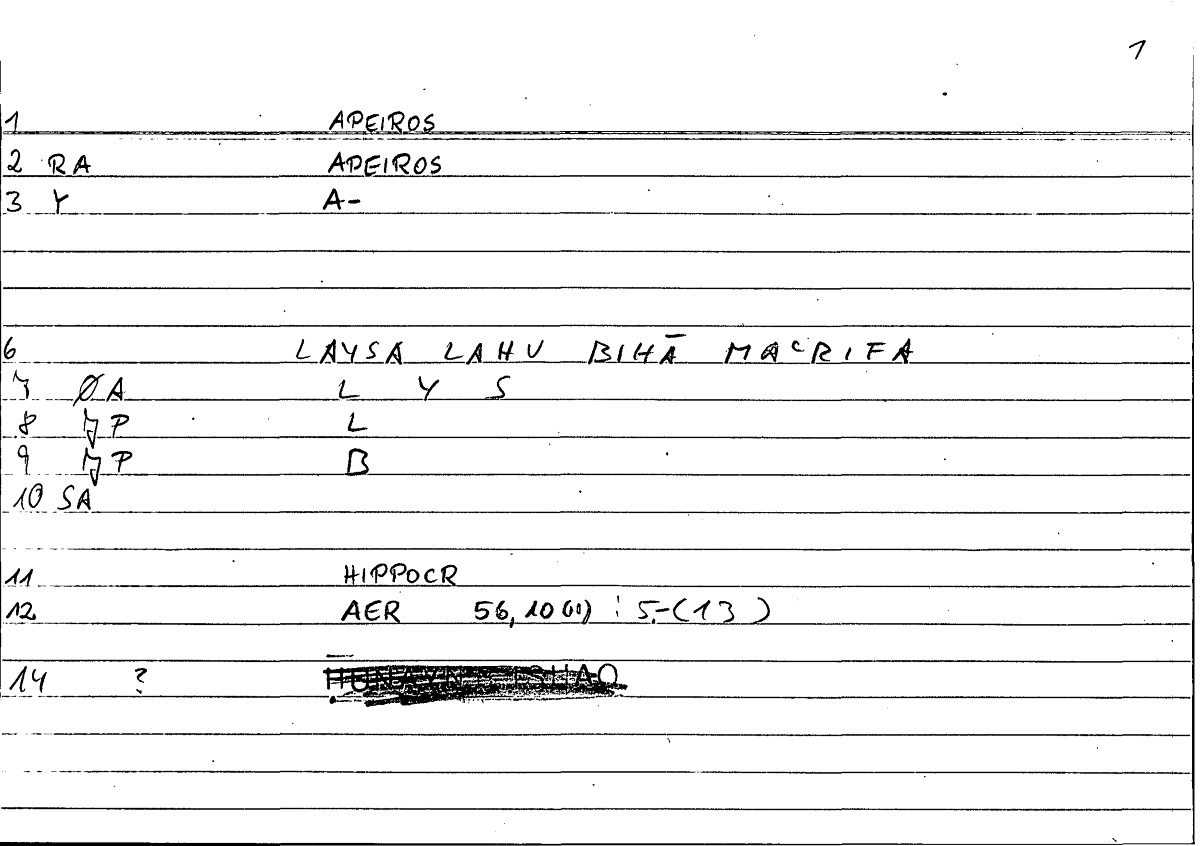 1
1 APEIROS
2 RA APEIROS
3 Y A-
6 LAYSA LAHU BIHĀ MAᶜRIFA
7 ØA L Y S
8 P L
9 P B
10 SA
11 HIPPOCR
12 AER 56,10 (11) : 5-(13)
14 ?